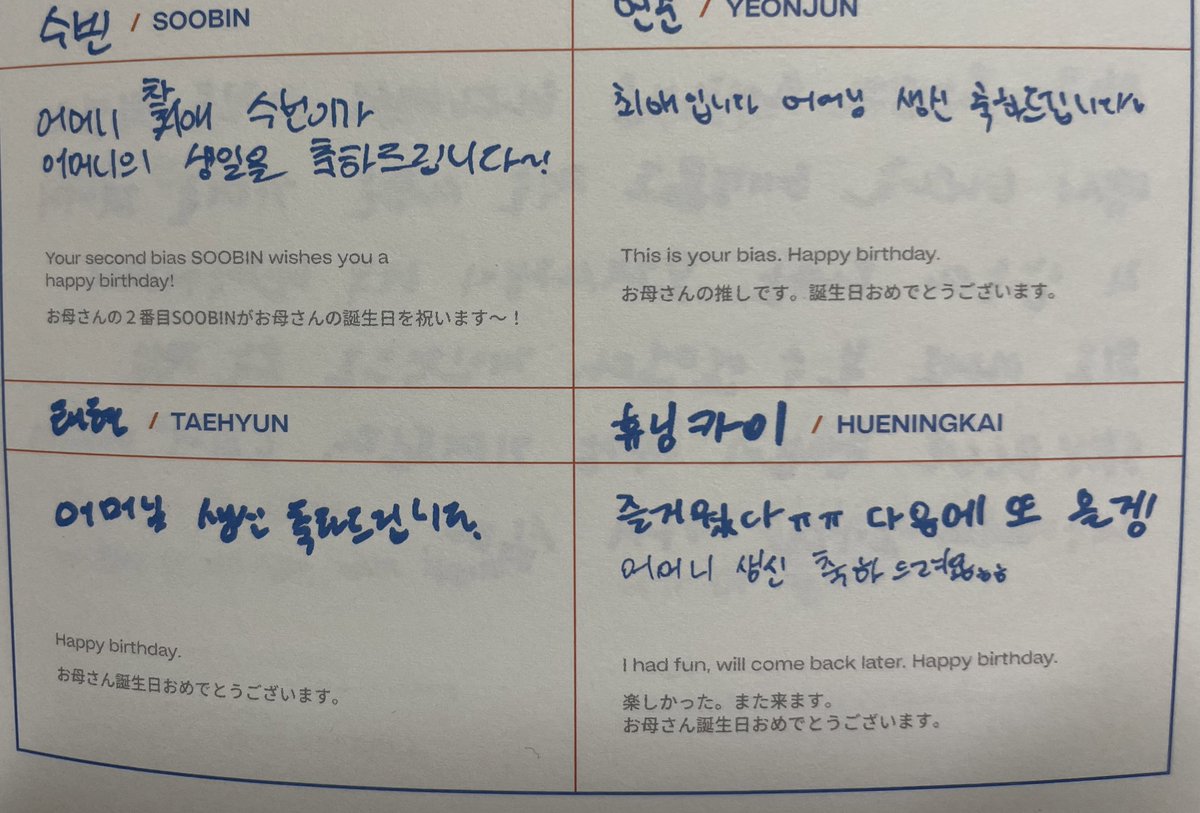 수빈 / SOOBIN
연준 / YEONJUN
어머니 차애 수빈이가
어머니의 생일을 축하드립니다~!
Your second bias SOOBIN wishes you a
happy birthday!
お母さんの2番目SOOBINがお母さんの誕生日を祝います〜！
최애입니다 어머님 생신 축하드립니다
This is your bias. Happy birthday.
お母さんの推しです。誕生日おめでとうございます。
태현 / TAEHYUN
휴닝카이 / HUENINGKAI
어머님 생신 축하드립니다.
Happy birthday.
お母さん誕生日おめでとうございます。
즐거웠다ㅠㅠ 다음에 또 올겡!
어머니 생신 축하드려욤ㅎㅎ
I had fun, will come back later. Happy birthday.
楽しかった。また来ます。
お母さん誕生日おめでとうございます。